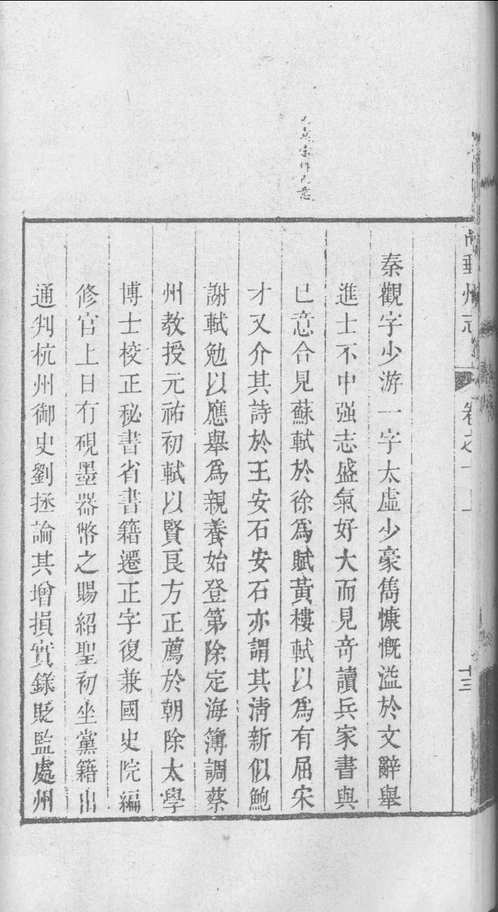 秦觀字少游一字太虛少豪雋慷慨溢於文辭舉
進士不中强志盛氣好大而見竒讀兵家書與
巳意合見蘇軾於徐爲賦黃樓軾以爲有屈宋
才又介其詩於王安石安石亦謂其清新似鮑
謝軾勉以應舉爲親養始登第除定海簿調蔡
州教授元祐初軾以賢良方正薦於朝除太學
博士校正秘書省書籍遷正字復兼國史院編
修官上日有硯墨器幣之賜紹聖初坐黨籍出
通判杭州御史劉拯論其增損實錄貶監處州